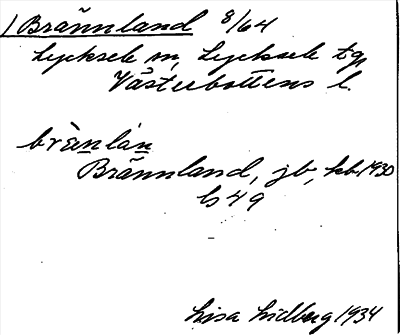 1 Brännland 8/64
Lycksele sn, Lycksele tg,
Västerbottens l.
brä̀nlan
Brännland, jb, kb 1930
b 49
Lisa Lidberg 1934